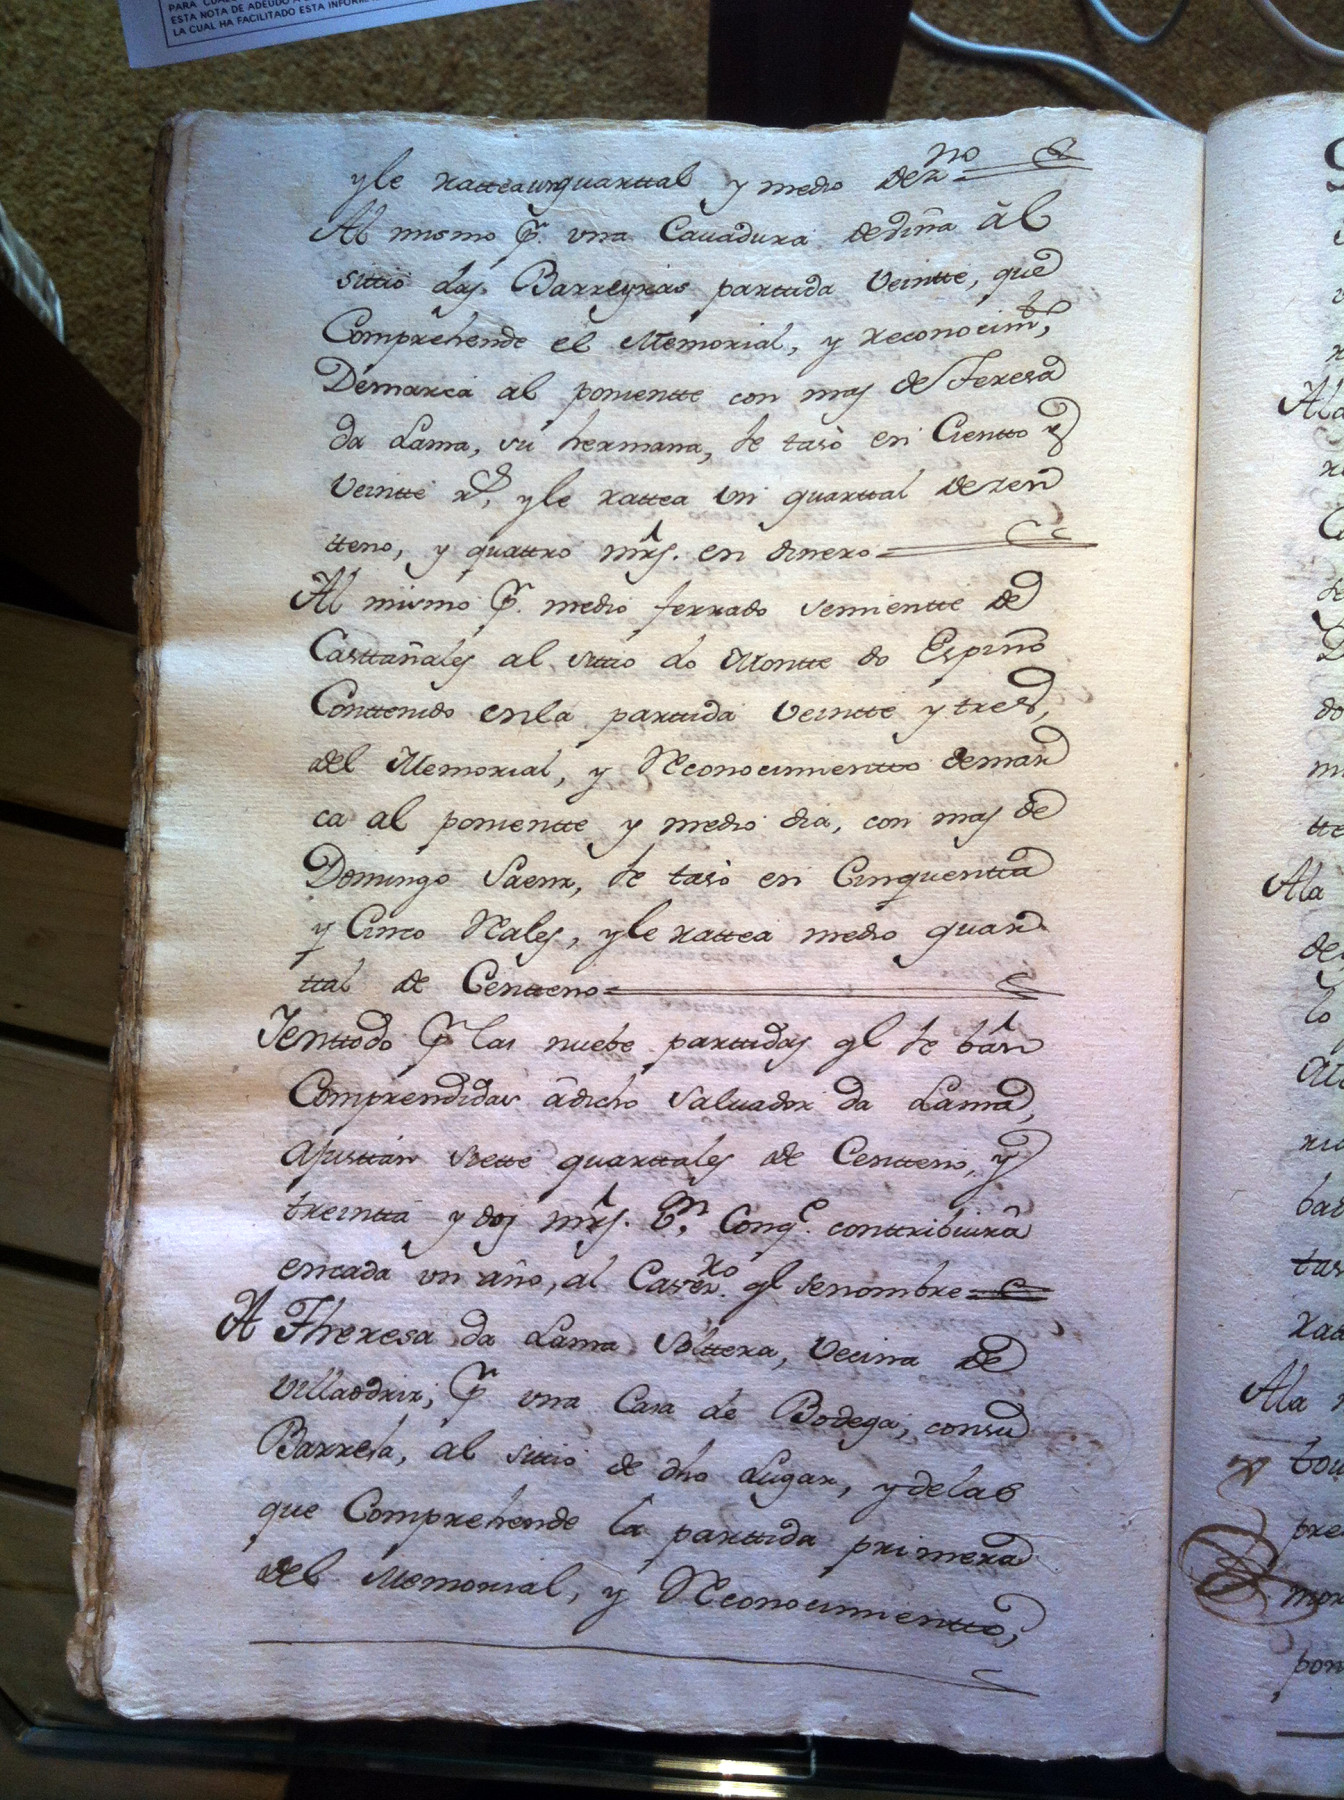 PARA CUAL
ESTA NOTA DE ADEUDO A
LA CUAL HA FACILITADO ESTA INFORM
yle ratteaunquarttal y medio de zno
Al mismo Pr. vna Cauadura deviña âl
sittio das Barreyras partida Veintte, que
Comprehende el Memorial, y reconocimto,
Demarca al ponientte con mas de Teresa
da Lama, su hermana, se tasò en Cientto y
Veintte rs, yle rattea un quarttal de zen
tteno, y quattro mrs. en dinero
Al mismo Pr. medio ferrado semientte de
Casttañales al sittio do Montte do Espiño
Conttenido enla parttida Veintte y tres,
del Memorial, y Reconocimientto demar
ca al ponientte y medio dia, con mas de
Domingo Saenz, se tasò en Cinquentta
y Cinco Rales, yle rattea medio quar
ttal de Centteno
Ienttodo Pr las nuebe parttidas ql se bân
Comprendidas âdicho Saluador da Lama,
Ajusttan siette quarttales de Centteno, y
treintta y dos mrs. Vn. Conqe. conttribuirâ
encada un año, al Caserro. ql senombre
A Theresa da Lama Solttera, Vecina de
Villaodriz, Pr vna Casa de Bodega, consu
Barrela, al sittio de dho Lugar, y delas
que Comprehende la parttida primera
del Memorial, y Reconocimientto,
Ala
Ala
de
lo
tte
Ala